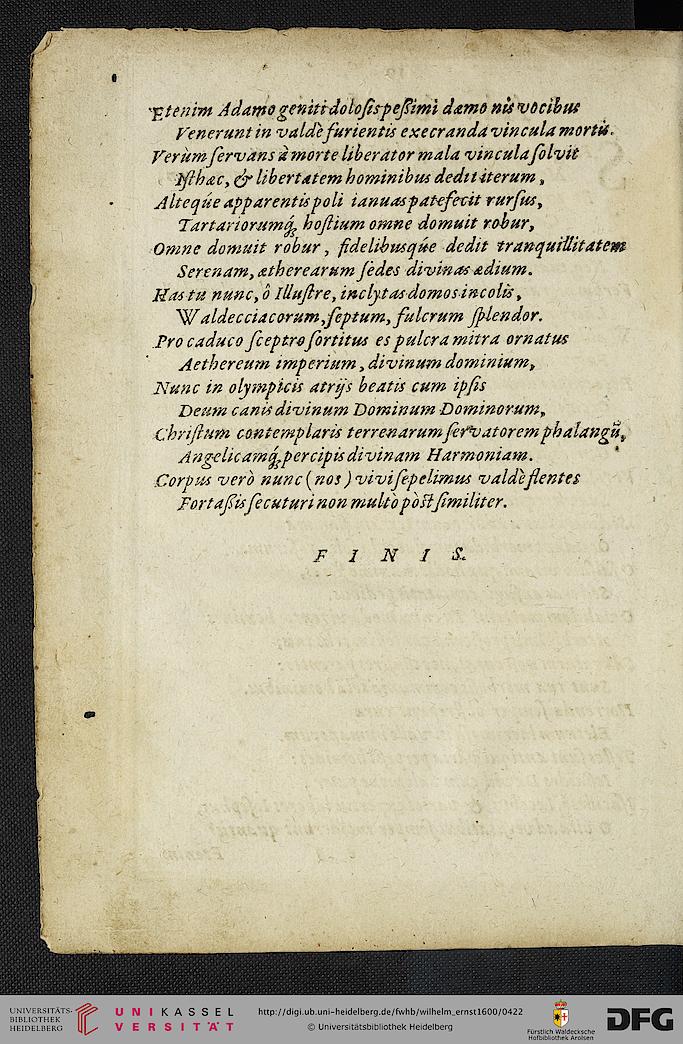 Etenim Adamo geniti doloſis peſsimi dæmo nis vocibus
Venerunt in valdè furientis execranda vincula mortis.
Verùm ſervans à morte liberator mala vincula ſolvit
Iſthæc, & libertatem hominibus dedit iterum,
Alteq́ue apparentis poli ianuas patefecit rurſus,
Tartariorumq́; hoſtium omne domuit robur,
Omne domuit robur, fidelibusq́ue dedit tranquillitatem
Serenam, ætherearum ſedes divinas ædium.
Has tu nunc, ô Illuſtre, inclytas domos incolis,
Waldecciacorum, ſeptum, fulcrum ſplendor.
Pro caduco ſceptro ſortitus es pulcra mitra ornatus
Aethereum imperium, divinum dominium,
Nunc in olympicis atrijs beatis cum ipſis
Deum canis divinum Dominum Dominorum,
Chriſtum contemplaris terrenarum ſervatorem phalangũ,
Angelicamq́; percipis divinam Harmoniam.
Corpus verò nunc (nos) vivi ſepelimus valdè flentes
Fortaſsis ſecuturi non multò pòſt ſimiliter.
F I N I S.
UNIVERSITÄTS-
BIBLIOTHEK
HEIDELBERG
UNIKASSEL
VERSITÄT
http://digi.ub.uni-heidelberg.de/fwhb/wilhelm_ernst1600/0422
© Universitätsbibliothek Heidelberg
Fürstlich Waldecksche
Hofbibliothek Arolsen
DFG